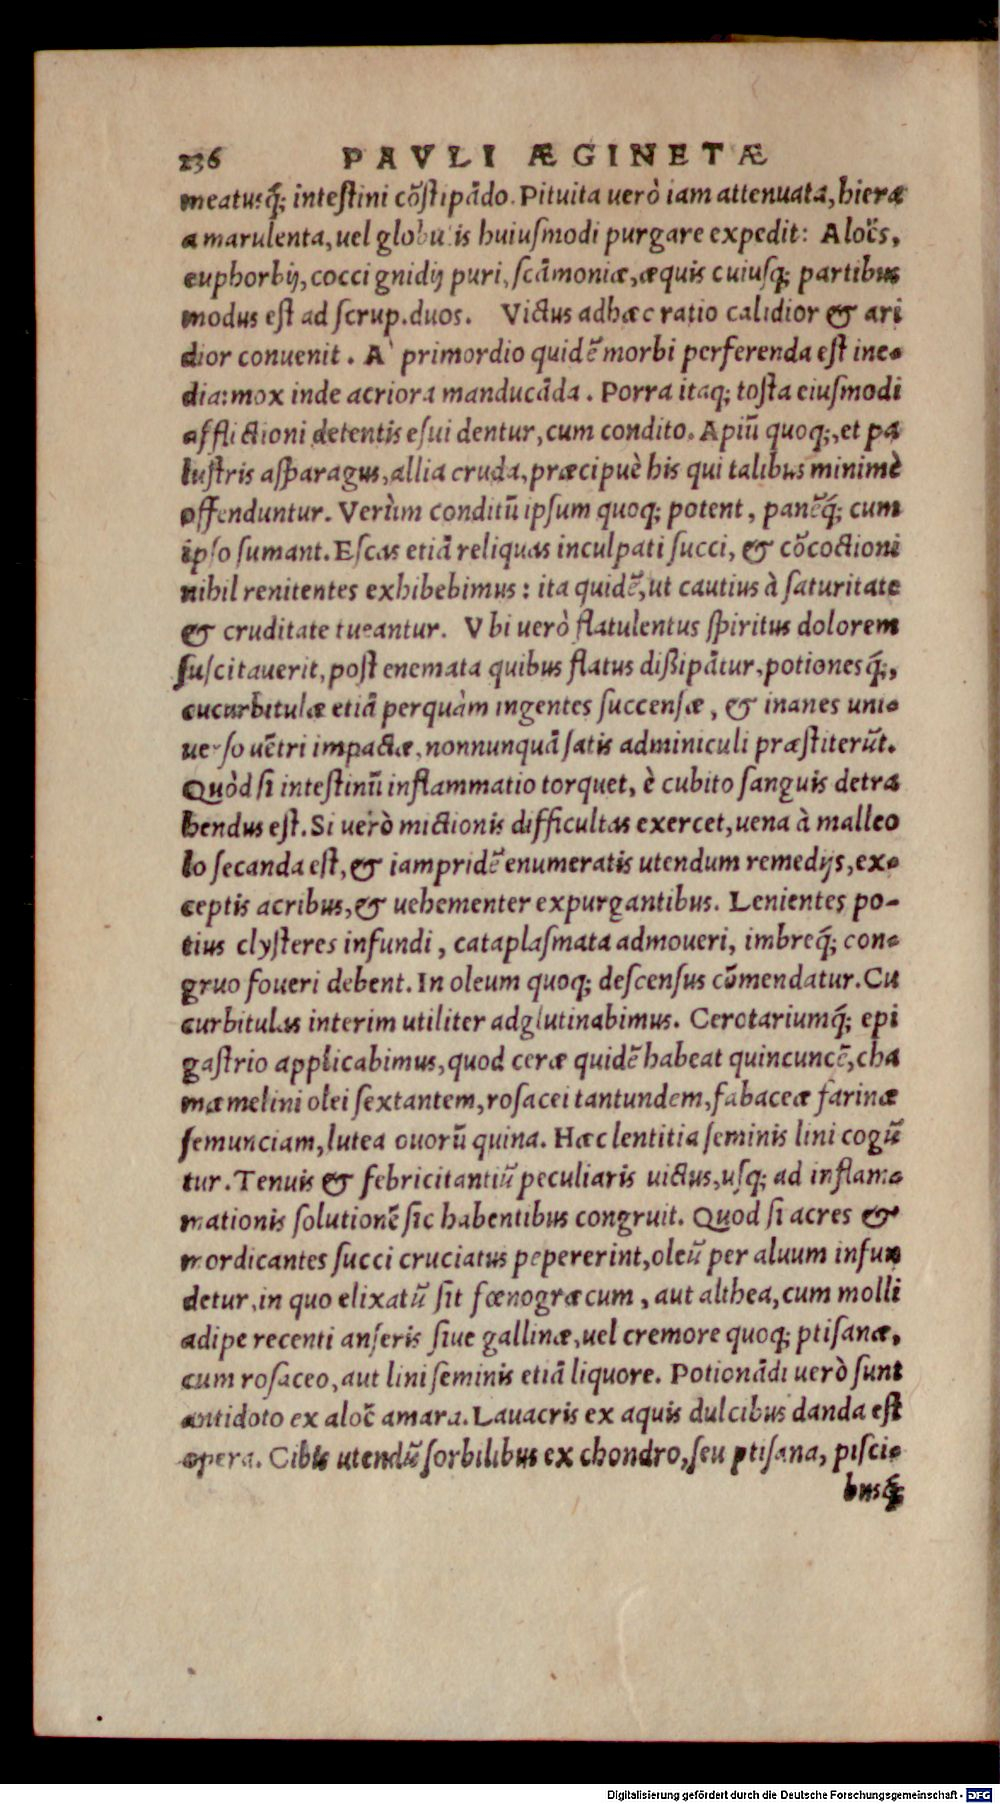 236 PAVLI ÆGINETÆ
meatusq́; intestini cōstipādo. Pituita uerò iam attenuata, hiera
amarulenta, uel globulis huiusmodi purgare expedit: Aloës,
euphorbij, cocci gnidij puri, scāmoniæ, æquis cuiusq; partibus
modus est ad scrup. duos. Victus adhæc ratio calidior & ari
dior conuenit. A' primordio quidē morbi perferenda est ine-
dia: mox inde acriora manducāda. Porra itaq; tosta eiusmodi
afflictioni detentis esui dentur, cum condito. Apiū quoq;, et pa
lustris asparagus, allia cruda, præcipuè his qui talibus minimè
offenduntur. Verùm conditū ipsum quoq; potent, panēq́; cum
ipso sumant. Escas etiā reliquas inculpati succi, & cōcoctioni
nihil renitentes exhibebimus: ita quidē, ut cautius à saturitate
& cruditate tueantur. Vbi uerò flatulentus spiritus dolorem
suscitauerit, post enemata quibus flatus dißipātur, potionesq́;,
cucurbitulæ etiā perquàm ingentes succensæ, & inanes uni-
uerso uētri impactæ, nonnunquā satis adminiculi præstiterūt.
Quòd si intestinū inflammatio torquet, è cubito sanguis detra
hendus est. Si uerò mictionis difficultas exercet, uena à malleo
lo secanda est, & iampridē enumeratis utendum remedijs, ex-
ceptis acribus, & uehementer expurgantibus. Lenientes po-
tius clysteres infundi, cataplasmata admoueri, imbreq́; con-
gruo foueri debent. In oleum quoq; descensus cōmendatur. Cu
curbitulas interim utiliter adglutinabimus. Cerotariumq́; epi
gastrio applicabimus, quod ceræ quidē habeat quincuncē, cha
mæmelini olei sextantem, rosacei tantundem, fabaceæ farinæ
semunciam, lutea ouorū quina. Hæc lentitia seminis lini cogū
tur. Tenuis & febricitantiū peculiaris uictus, usq; ad inflam-
mationis solutionē sic habentibus congruit. Quod si acres &
mordicantes succi cruciatus pepererint, oleū per aluum infun
detur, in quo elixatū sit fœnogræcum, aut althea, cum molli
adipe recenti anseris siue gallinæ, uel cremore quoq; ptisanæ,
cum rosaceo, aut lini seminis etiā liquore. Potionādi uerò sunt
antidoto ex aloë amara. Lauacris ex aquis dulcibus danda est
opera. Cibis utendū sorbilibus ex chondro, seu ptisana, pisci-
busq́;
Digitalisierung gefördert durch die Deutsche Forschungsgemeinschaft - DFG